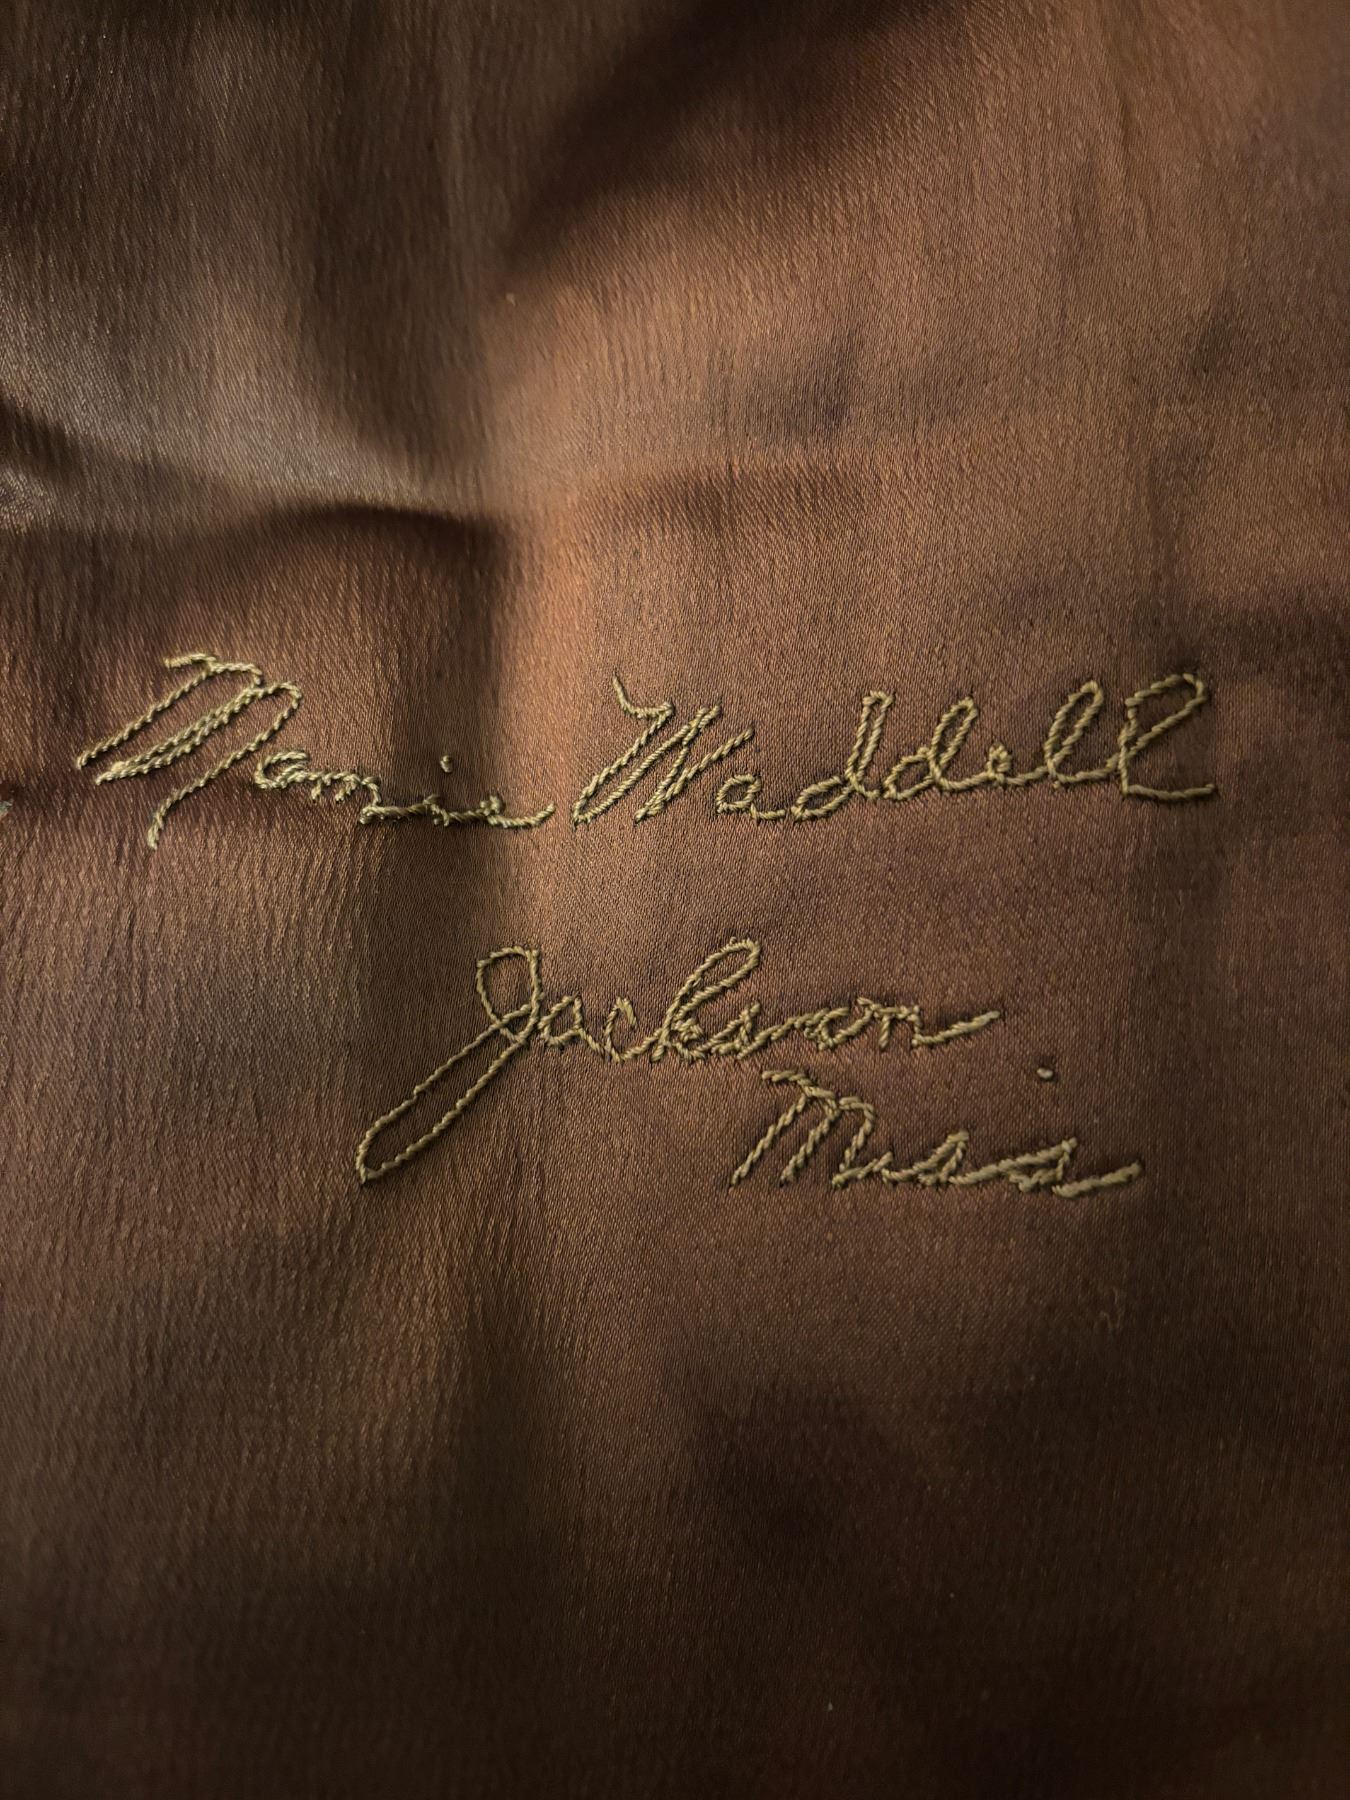 Mamie Waddell
Jackson
Miss